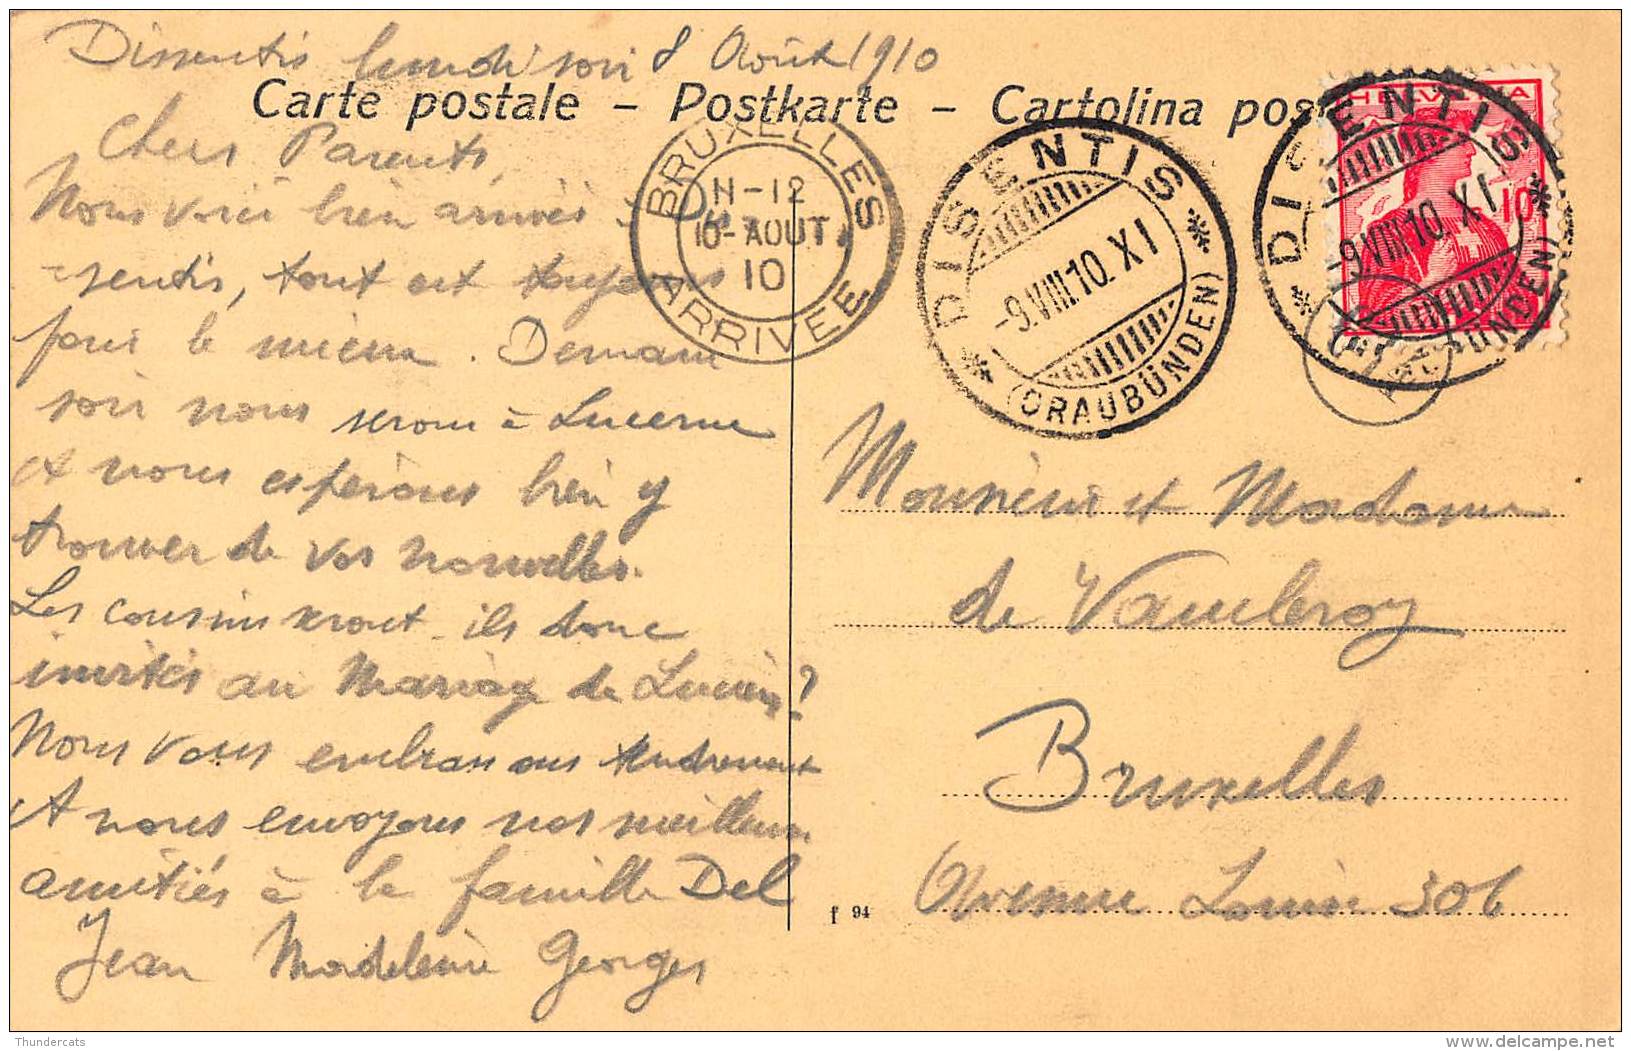 Dissentis lundi soir 8 Août 1910
Carte postale – Postkarte – Cartolina pos
Chers Parents,
Nous voici bien arrivés à Dis-
sentis, tout est toujours
pour le mieux. Demain
soir nous serons à Lucerne
et nous espérons bien y
trouver de vos nouvelles.
Les cousins seront-ils donc
invités au mariage de Lucien?
Nous vous embrassons tendrement
et nous envoyons nos meilleures
amitiés à la famille Del
Jean Madeleine Georges
BRUXELLES
11-12
10-AOUT
10
ARRIVEE
DISENTIS
-9.VIII.10. XI
(GRAUBÜNDEN)
HELVETIA
10
DISENTIS
-9.VIII.10. XI
(GRAUBÜNDEN)
Monsieur et Madame
de Vamberoy
Bruxelles
Avenue Louise 306
f 94
Thundercats
delcampe.net